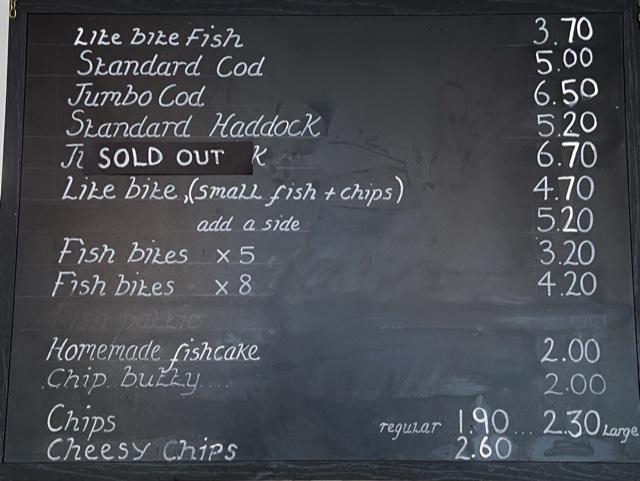 Lite bite Fish 3.70
Standard Cod 5.00
Jumbo Cod 6.50
Standard Haddock 5.20
SOLD OUT K 6.70
Lite bite, (small fish + chips) 4.70
add a side 5.20
Fish bites x 5 3.20
Fish bites x 8 4.20
Fish pattie
Homemade fishcake 2.00
Chip butty.... 2.00
Chips regular 1.90 ... 2.30 Large
Cheesy Chips 2.60